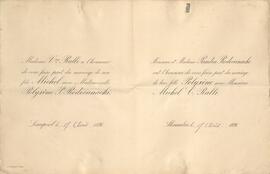 Madame Vve Ralli a l'honneur
de vous faire part du mariage de son
fils Michel avec Mademoiselle
Polyxène P. Rodocanachi.
Liverpool le 17 Août 1896
Monsieur et Madame Pandia Rodocanachi
ont l'honneur de vous faire part du mariage
de leur fille Polyxène avec Monsieur
Michel C. Ralli.
le 17 Août 1896